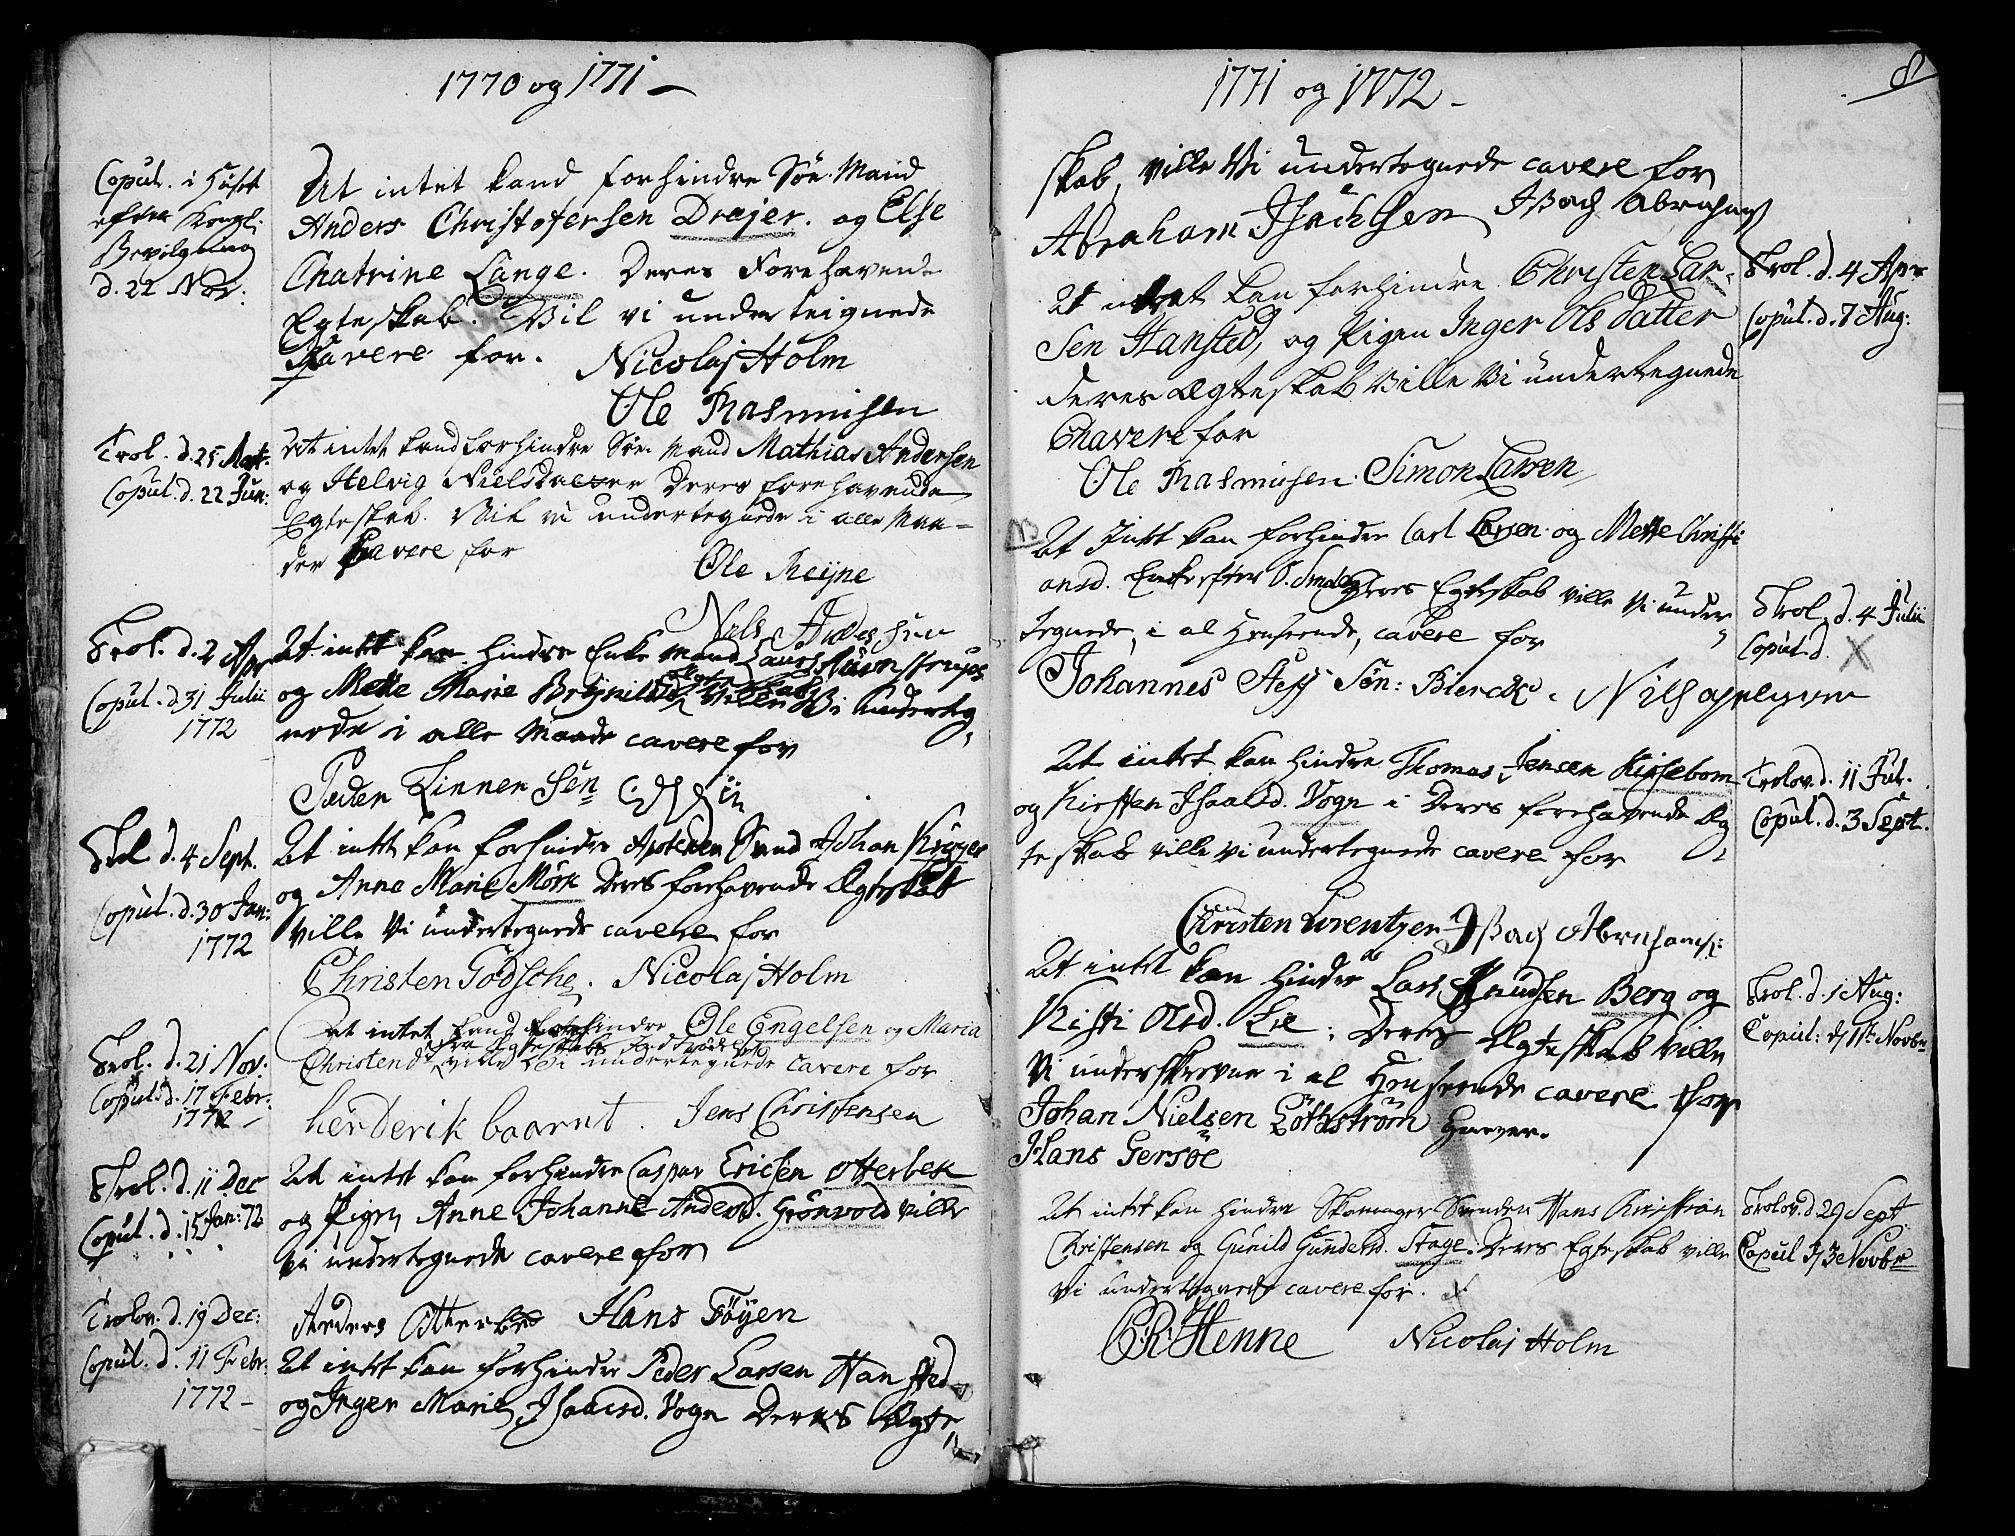 1770 og 1771 –
Copul. i Huset
efter Kongl.
Bevilgning
d. 22 Nov:
At intet kand forhindre Søe-Mand
Anders Christofersen Drejer. og Else
Chatrine Lange. Deres Forehavende
Egteskab. Vil vi underteignede
Cavere for. Nicolaj Holm
Ole Rasmusen
Trol. d. 25 Mart:
Copul. d. 22 Jun:
At intet kand forhindre Søe Mand Mathias Andersen
og Helvig Nielsdatter Deres forehavende
Egteskab. Vil vi undertegnede i alle Maa-
der Cavere for
Ole Reijne
Niels Andershen
Trol. d. 2 Apr
Copul. d. 31 Julii
1772
At intet kan hindre Enke Mand
og Mette Marie Ville Vi underteg-
nede i alle Maade cavere for
Peder Linnen Sen
Trol d. 4 Sept.
Copul. d. 30 Jan:
1772
At intet kan forhindre Svend Johan Krüger
og Anne Marie Mörk Deres forehavende Ægteskab
ville Vi undertegnede cavere for
Christen Godsche. Nicolaj Holm
Trol. d. 21 Nov:
Copul: d. 17 Febr:
1772 –
At intet kand forhindre Ole Engelsen og Maria
Christensd. ville Vi undertegnede cavere for
herderik baarnt. Jens Christensen
Trol. d. 11 Dec
Copul. d. 15 Jan: 72
At intet kan forhindre Caspar Ericsen Otterbek
og Pigen Anne Johanne Andersd. Grönvold ville
Vi undertegnede cavere for
Anders Otterbek Hans Föyen
Trolov. d. 19 Dec:
Copul. d. 11 Febr.
1772 –
At intet kan forhindre Peder Larsen Hansted
og Inger Marie Isaacsd. Vogn Deres Ægte-
1771 og 1772 –
8
skab, ville Vi undertegnede cavere for
Abraham Isachsen Isach Abrahams
Trol. d. 4 Apr
Copul. d. 7 Aug:
At intet kan forhindre Christen Lar-
sen Hansted, og Pigen Inger Olsdatter
deres Ægteskab Ville Vi undertegnede
Chavere for
Ole Rasmusen Simon Larsen
At Intet kan forhindre Carl Larsen og Mette Christi
ansd. Enke efter Deres Egteskab ville Vi under
tegnede, i al Henseende, cavere for
Trol. d. 4 Julii
Copul. d. X
Johannes Sön: Bierck.
At intet kan hindre Thomas Jensen Kirsebom
og Kirsten Isaacsd. Vogn i Deres forehavende Æg
teskab ville vi undertegnede cavere for
Trolov. d. 11 Jul.
Copul. d. 3 Sept.
Christen Lorentzen Isach Abrahams:
At intet kan hindre Lars Knudsen Berg og
Kisti Olsd. Lie: Deres Ægteskab ville
Vi underskrevne i al Henseende cavere for
Trol. d. 1 Aug:
Copul: d. 1te Novbr
Johan Nielsen Götkström
Hans Gersöe
At intet kan hindre Skomager Svenden Hans Christian
Christensen og Gunild Gundersd. Stage. Deres Egteskab ville
Vi undertegnede cavere for.
Trolov. d 29 Sept
Copul d. 3 Novbr
Henne Nicolaj Holm